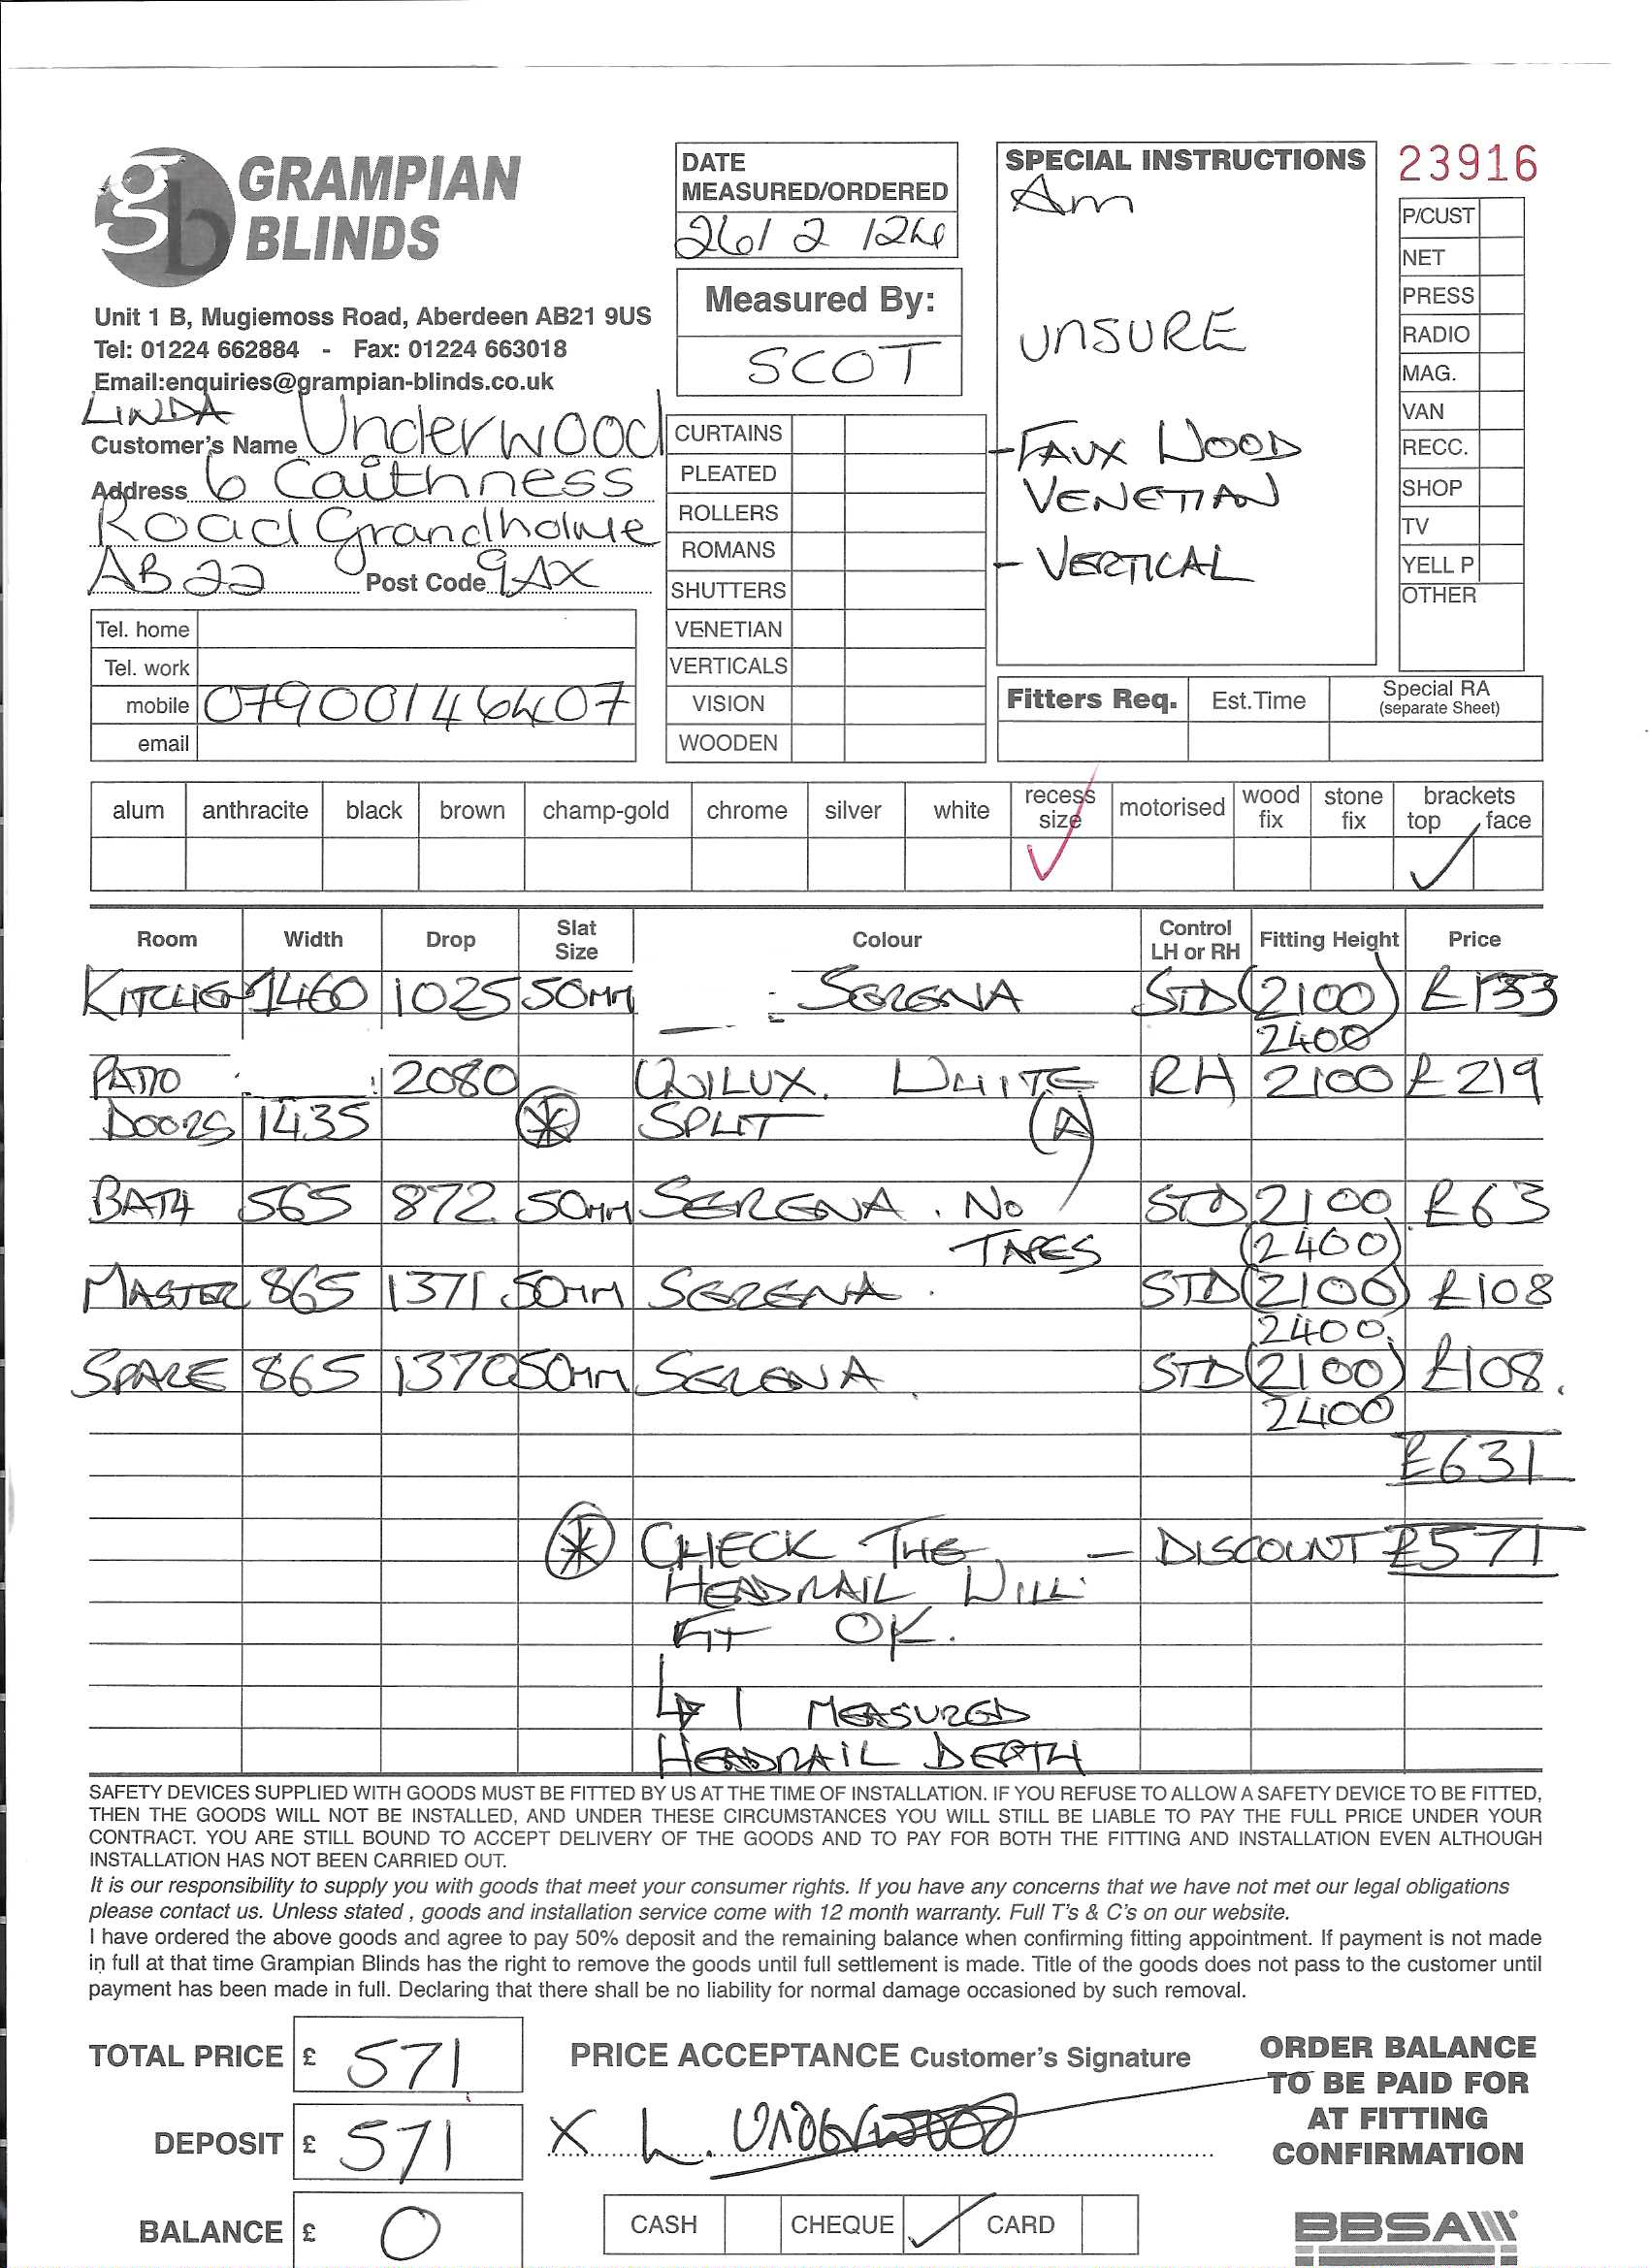 GRAMPIAN
BLINDS
Unit 1 B, Mugiemoss Road, Aberdeen AB21 9US
Tel: 01224 662884 - Fax: 01224 663018
Email:enquiries@grampian-blinds.co.uk
DATE
MEASURED/ORDERED
26/2/24
Measured By:
SCOT
SPECIAL INSTRUCTIONS
Am
UNSURE
- FAUX WOOD
VENETIAN
- VERTICAL
23916
P/CUST
NET
PRESS
RADIO
MAG.
VAN
RECC.
SHOP
TV
YELL P
OTHER
LINDA
Customer's Name Underwood
Address 6 Caithness
Road Grandholme
AB22 Post Code 9AX
Tel. home
Tel. work
mobile 07900146407
email
CURTAINS
PLEATED
ROLLERS
ROMANS
SHUTTERS
VENETIAN
VERTICALS
VISION
WOODEN
Fitters Req. Est.Time Special RA
(separate Sheet)
alum anthracite black brown champ-gold chrome silver white recess size motorised wood fix stone fix brackets top face
Room Width Drop Slat Size Colour Control LH or RH Fitting Height Price
KITCHEN 1460 1025 50mm SERENA STD (2100) £133
2400
PATIO 2080 UNILUX. WHITE RH 2100 £219
DOORS 1435 * SPLIT (A)
BATH 565 872 50mm SERENA. NO STD 2100 £63
TAPES (2400)
MASTER 865 1371 50mm SERENA. STD (2100) £108
2400
SPARE 865 1370 50mm SERENA. STD (2100) £108.
2400
£631
* CHECK THE - DISCOUNT £571
HEADRAIL WILL
FIT OK.
↳ I MEASURED
HEADRAIL DEPTH
SAFETY DEVICES SUPPLIED WITH GOODS MUST BE FITTED BY US AT THE TIME OF INSTALLATION. IF YOU REFUSE TO ALLOW A SAFETY DEVICE TO BE FITTED,
THEN THE GOODS WILL NOT BE INSTALLED, AND UNDER THESE CIRCUMSTANCES YOU WILL STILL BE LIABLE TO PAY THE FULL PRICE UNDER YOUR
CONTRACT. YOU ARE STILL BOUND TO ACCEPT DELIVERY OF THE GOODS AND TO PAY FOR BOTH THE FITTING AND INSTALLATION EVEN ALTHOUGH
INSTALLATION HAS NOT BEEN CARRIED OUT.
It is our responsibility to supply you with goods that meet your consumer rights. If you have any concerns that we have not met our legal obligations
please contact us. Unless stated , goods and installation service come with 12 month warranty. Full T's & C's on our website.
I have ordered the above goods and agree to pay 50% deposit and the remaining balance when confirming fitting appointment. If payment is not made
in full at that time Grampian Blinds has the right to remove the goods until full settlement is made. Title of the goods does not pass to the customer until
payment has been made in full. Declaring that there shall be no liability for normal damage occasioned by such removal.
TOTAL PRICE £ 571
DEPOSIT £ 571
BALANCE £ 0
PRICE ACCEPTANCE Customer's Signature
X L. Underwood
CASH CHEQUE CARD
ORDER BALANCE
TO BE PAID FOR
AT FITTING
CONFIRMATION
BBSA